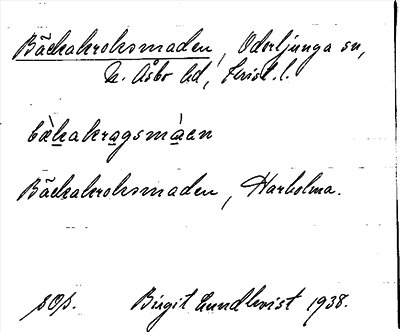 Bäckakroksmaden, Oderljunga sn,
N. Åsbo hd, Krist. l.
bækakragsmaen
Bäckakroksmaden, Harholma.
sop.
Birgit Lundkvist 1938.